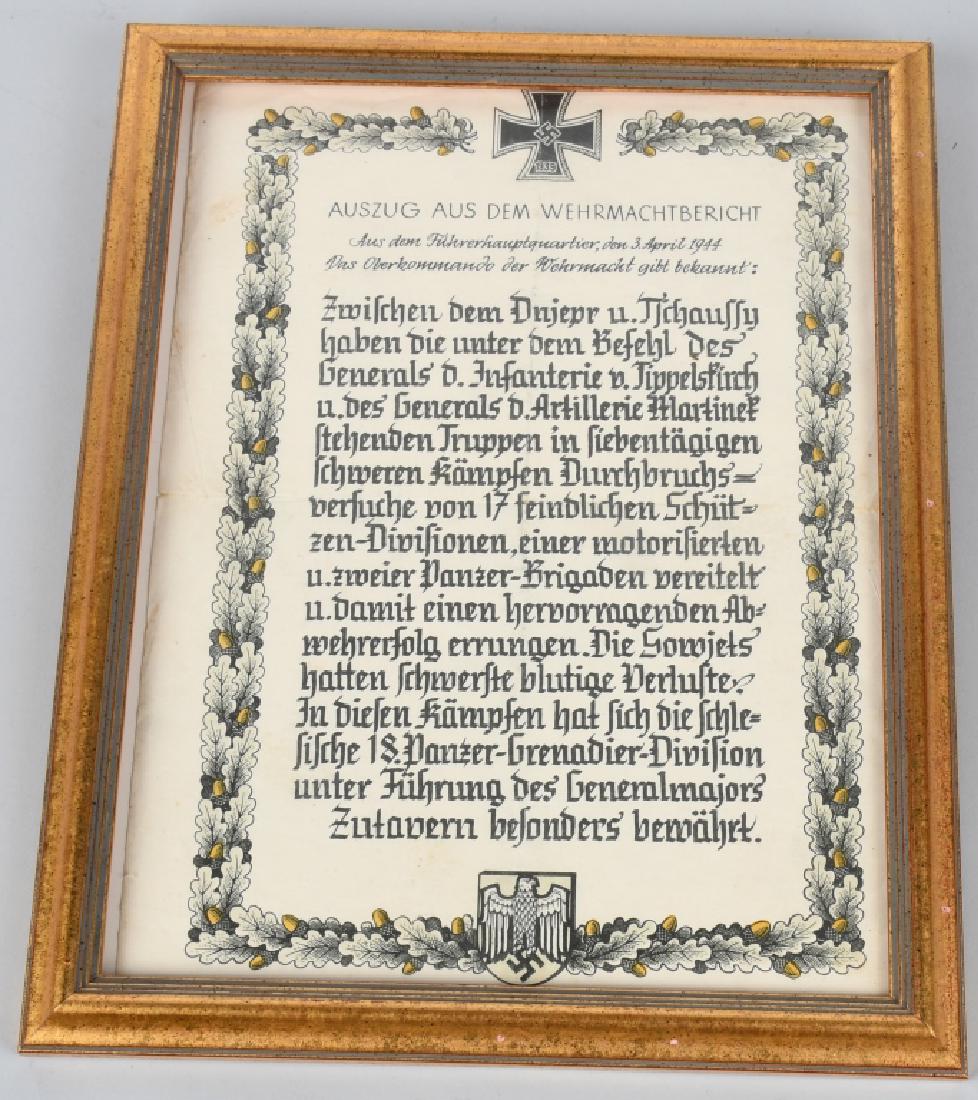 1939
AUSZUG AUS DEM WEHRMACHTBERICHT
Aus dem Führerhauptquartier, den 3. April 1944
Das Oberkommando der Wehrmacht gibt bekannt:
Zwischen dem Dnjepr u. Tschaussy
haben die unter dem Befehl des
Generals d. Infanterie v. Tippelskirch
u. des Generals d. Artillerie Martinek
stehenden Truppen in siebentägigen
schweren Kämpfen Durchbruchs=
versuche von 17 feindlichen Schüt=
zen-Divisionen, einer motorisierten
u. zweier Panzer-Brigaden vereitelt
u. damit einen hervorragenden Ab=
wehrerfolg errungen. Die Sowjets
hatten schwerste blutige Verluste.
In diesen Kämpfen hat sich die schle=
sische 18. Panzer-Grenadier-Division
unter Führung des Generalmajors
Zutavern besonders bewährt.